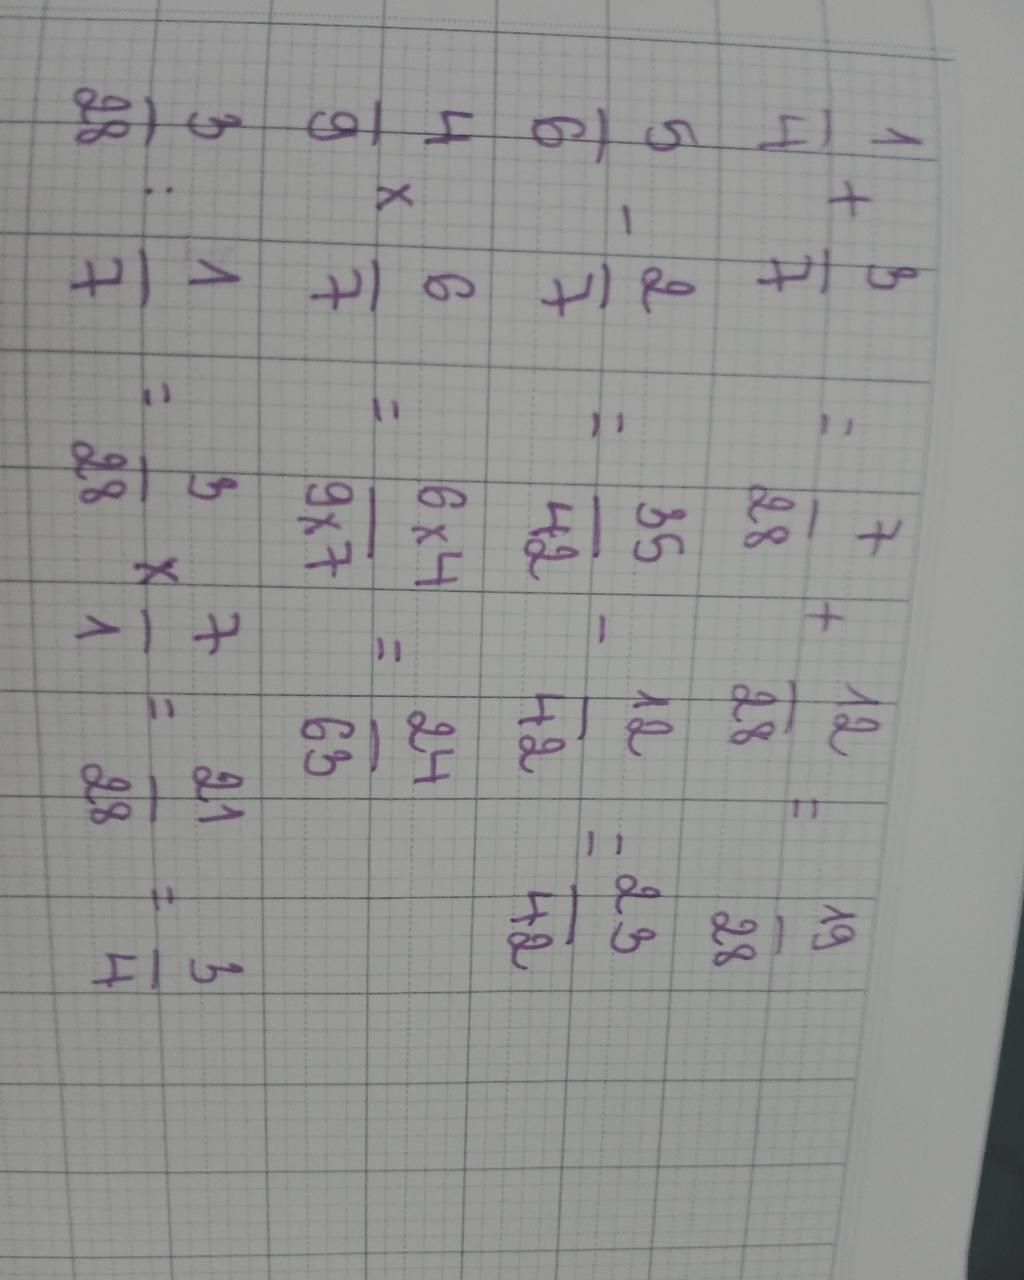 1/4 + 3/7 = 7/28 + 12/28 = 19/28
5/6 - 2/7 = 35/42 - 12/42 = 23/42
4/9 x 6/7 = 6x4/9x7 = 24/63
3/28 : 1/7 = 3/28 x 7/1 = 21/28 = 3/4